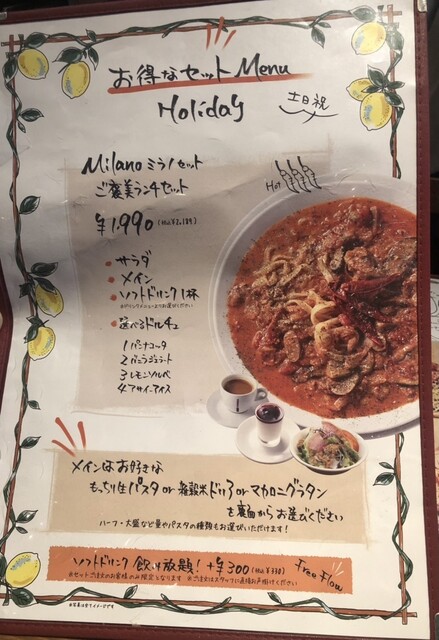 お得なセット Menu
Holiday
土日祝
Milano ミラノセット
ご褒美ランチセット
Hot
¥1,990 (tax.¥2,189)
サラダ
メイン
ソフトドリンク1杯
※ドリンクメニューよりお選びください
選べるドルチェ
1 パンナコッタ
2 バニラジェラート
3 レモンソルベ
4 アサイーアイス
メインはお好きな
もっちり生パスタ or 雑穀米ドリア or マカロニグラタン
を裏面からお選びください
ハーフ・大盛など量やパスタの種類もお選びいただけます!
ソフトドリンク 飲み放題! +¥300 (tax.¥330)
Free Flow
※セットご注文のお客様のみ限定となります ※ご注文はスタッフに直接お声掛けください
※写真は全てイメージです